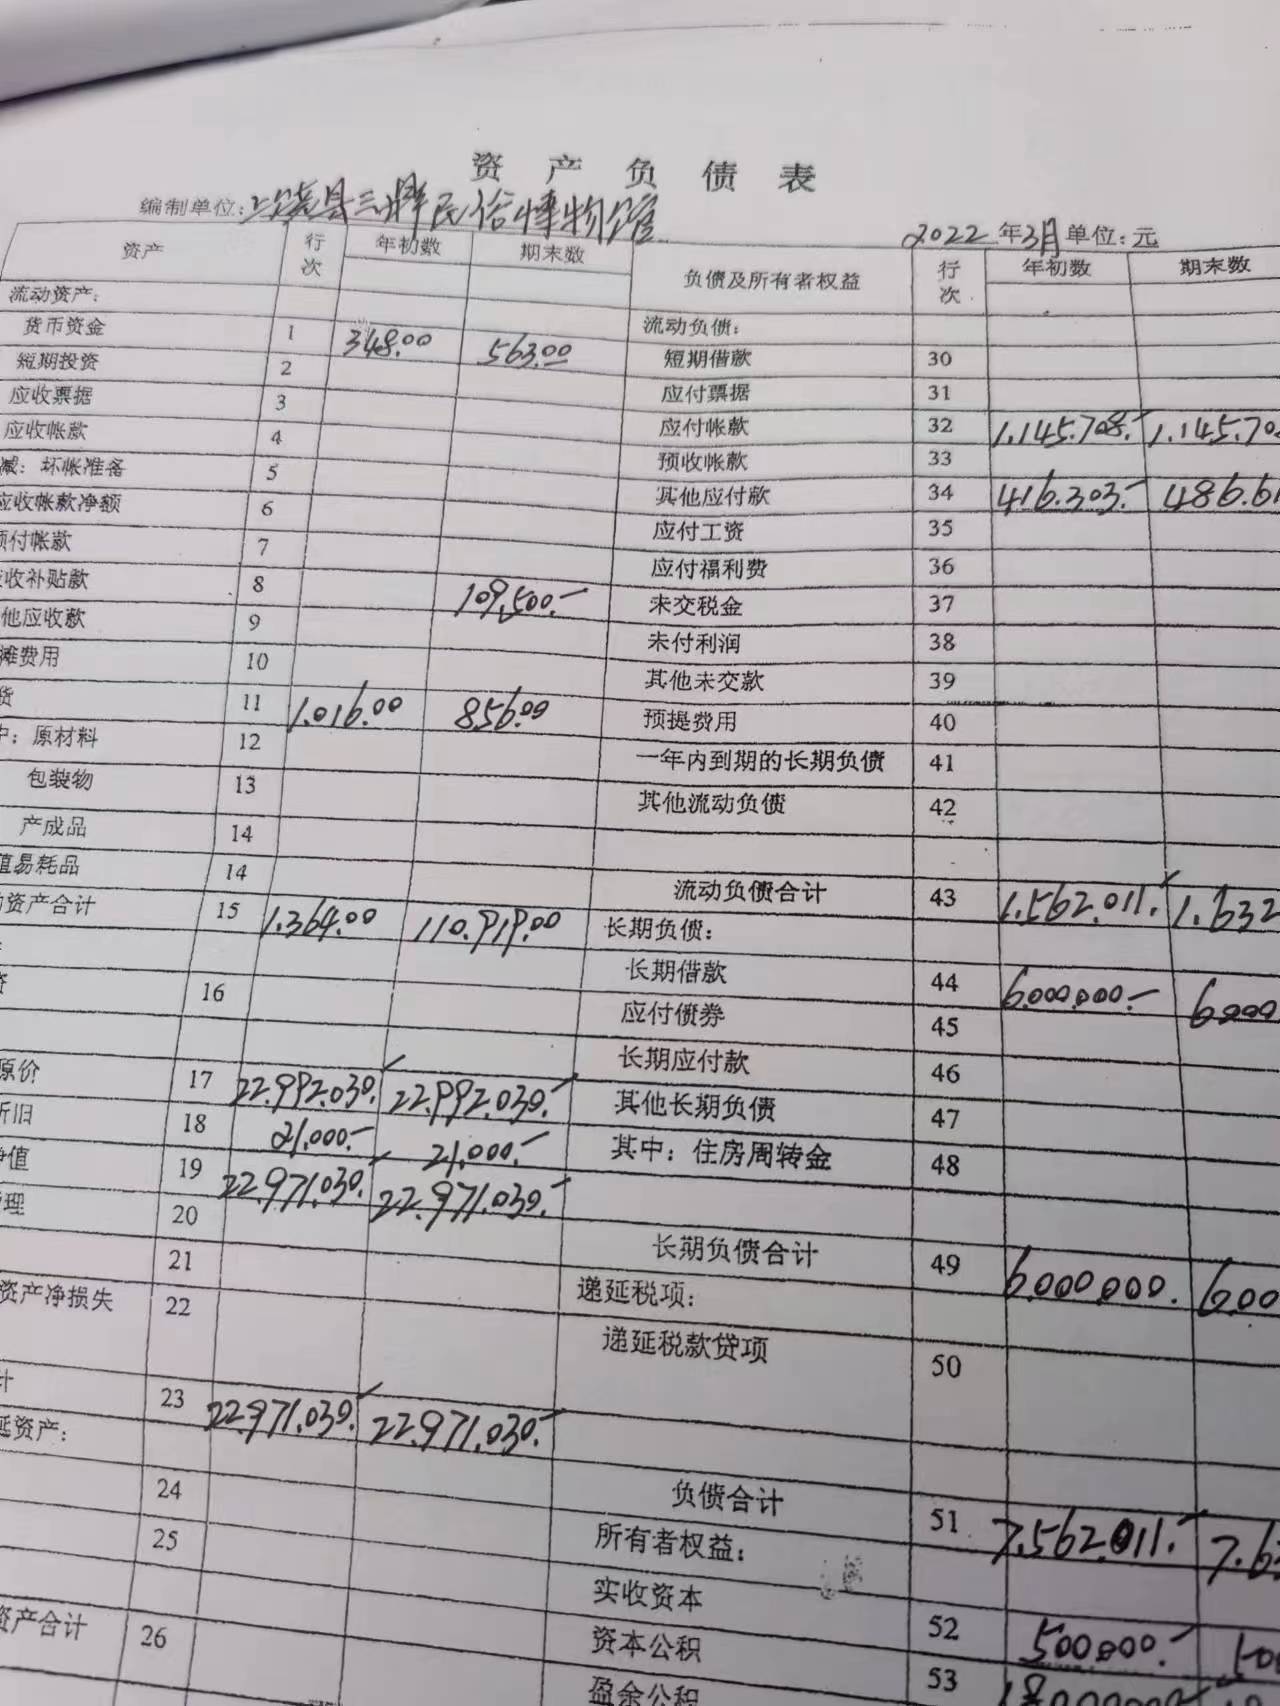 资产负债表
编制单位:上饶县三牌民俗博物馆 2022年3月 单位:元
资产 行次 年初数 期末数 负债及所有者权益 行次 年初数 期末数
流动资产: 流动负债:
货币资金 1 348.00 563.00 短期借款 30
短期投资 2 应付票据 31
应收票据 3 应付帐款 32 1.145.708.- 1.145.70
应收帐款 4 预收帐款 33
减:坏帐准备 5 其他应付款 34 416.303.- 486.61
应收帐款净额 6 应付工资 35
预付帐款 7 应付福利费 36
收补贴款 8 109,500.- 未交税金 37
他应收款 9 未付利润 38
摊费用 10 其他未交款 39
货 11 1.016.00 856.00 预提费用 40
中:原材料 12 一年内到期的长期负债 41
包装物 13 其他流动负债 42
产成品 14
值易耗品 14 流动负债合计 43 1.562.011.- 1.632
资产合计 15 1.364.00 110.919.00 长期负债:
资 16 长期借款 44 6.000.000.- 6.000
应付债券 45
原价 17 22.992.030.- 22.992.030.- 长期应付款 46
折旧 18 21.000.- 21.000.- 其他长期负债 47
净值 19 22.971.030.- 22.971.030.- 其中:住房周转金 48
理 20
21 长期负债合计 49 6.000.000. 6.00
资产净损失 22 递延税项:
递延税款贷项 50
计 23 22.971.030.- 22.971.030.-
延资产:
24 负债合计 51 7.562.011.- 7.63
25 所有者权益:
实收资本 52 500.000.- 500
资产合计 26 资本公积 53
盈余公积